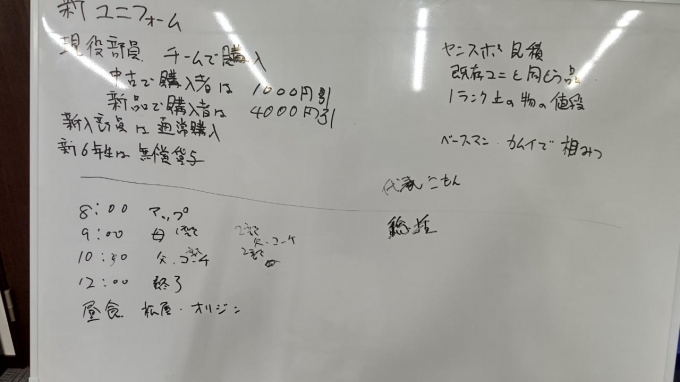 新ユニフォーム
現役部員 チームで購入
中古で購入者は 1000円引
新品で購入者は 4000円引
新入部員は通常購入
新6年生は無償貸与
ヤンスポ見積
既存ユニと同とう品
1ランク上の物の値段
ベースマン・カムイで相みつ
8:00 アップ
9:00 母
10:30 父.コーチ
12:00 終了
昼食 松屋・オリジン
総括